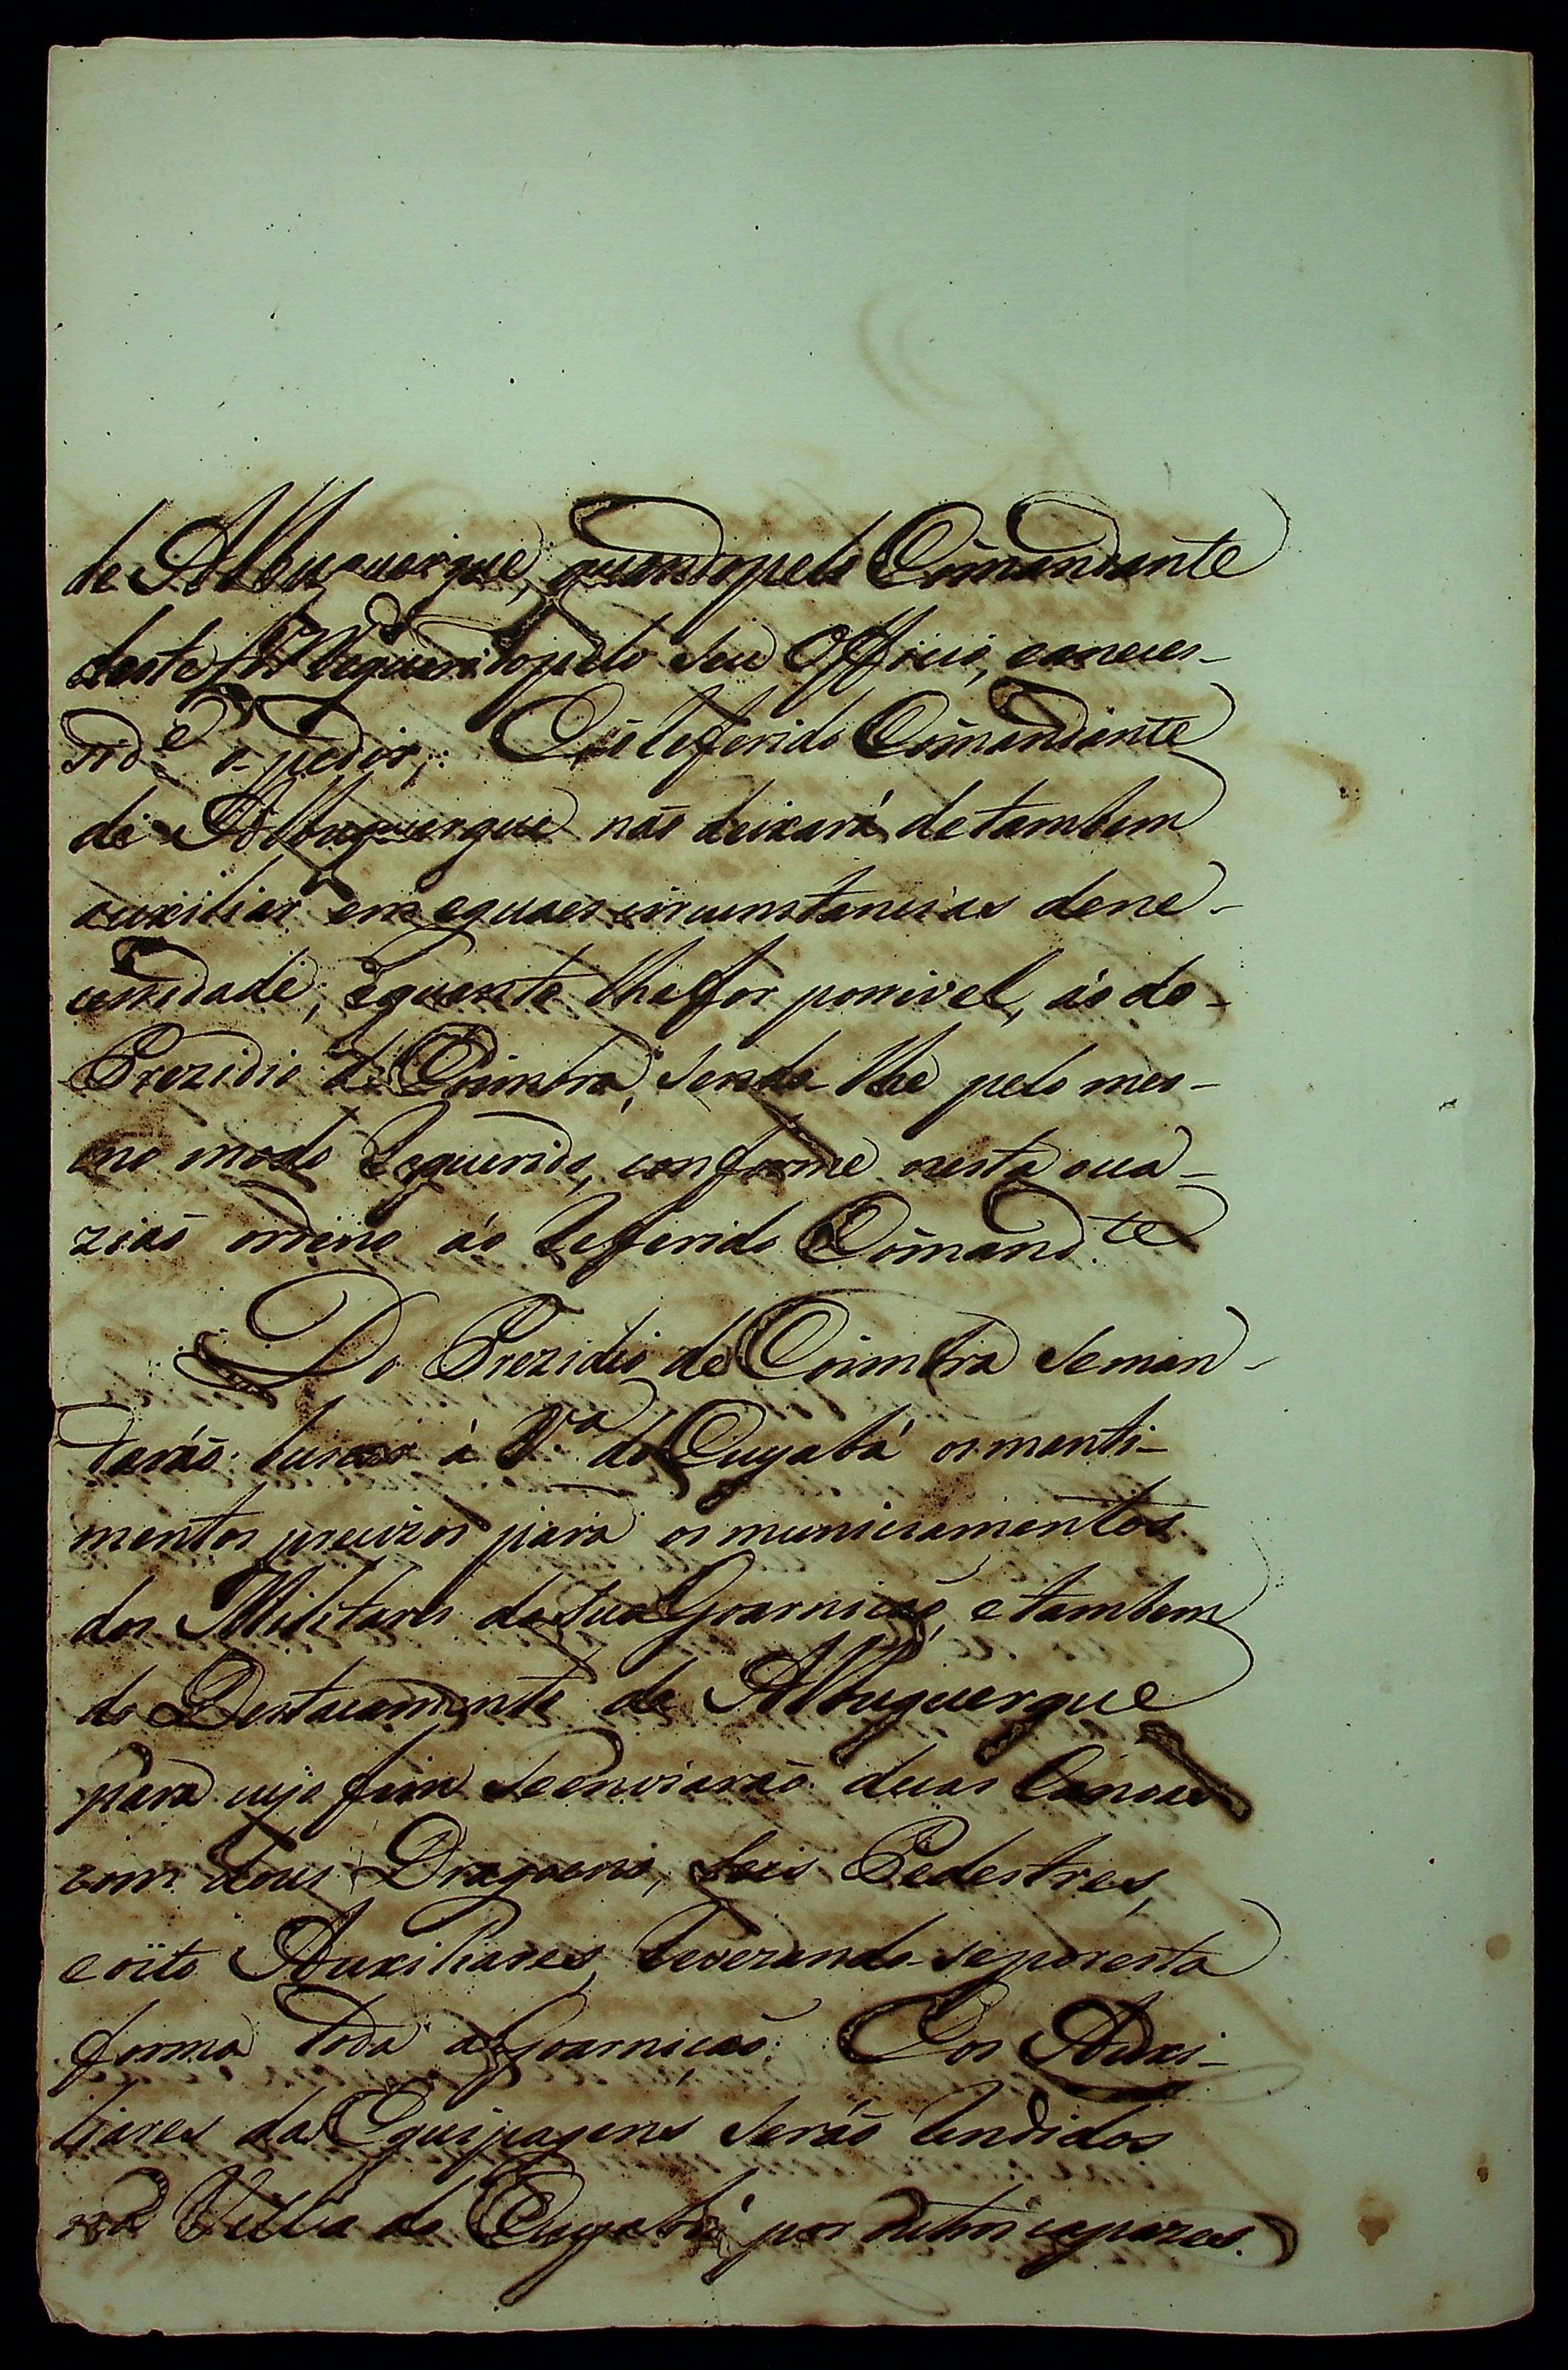 de Albuquerque, quando pelo Cõmandante
deste for requerido pelo seu Officio, eaneces-
sid.e o pedir; E o referido Cõmandante
de Albuquerque naõ deixará detambem
auxiliar em eguaes circumstancias dene-
cessidade, equanto lhe for possivel, áo do
Prezidio de Coimbra, sendo-lhe pelo mes-
mo modo requerido, conforme nesta occa-
ziaõ ordeno áo referido Cõmand.te
Do Prezidio de Coimbra seman-
daráõ buscar á V.a do Cuyabá osmanti-
mentos precizos para osmuniciamentos
dos Militares dasua Goarniçaõ, etambem
do Destacamento de Albuquerque
para cujo fim seenviaráõ duas Canoas
com dous Dragoens, seis Pedestres,
eoito Auxiliares, revezando-seporesta
forma toda aGoarniçaõ: E os Auxi-
liares das Equipagens seráõ rendidos
na Villa do Cuyabá por outros capazes.